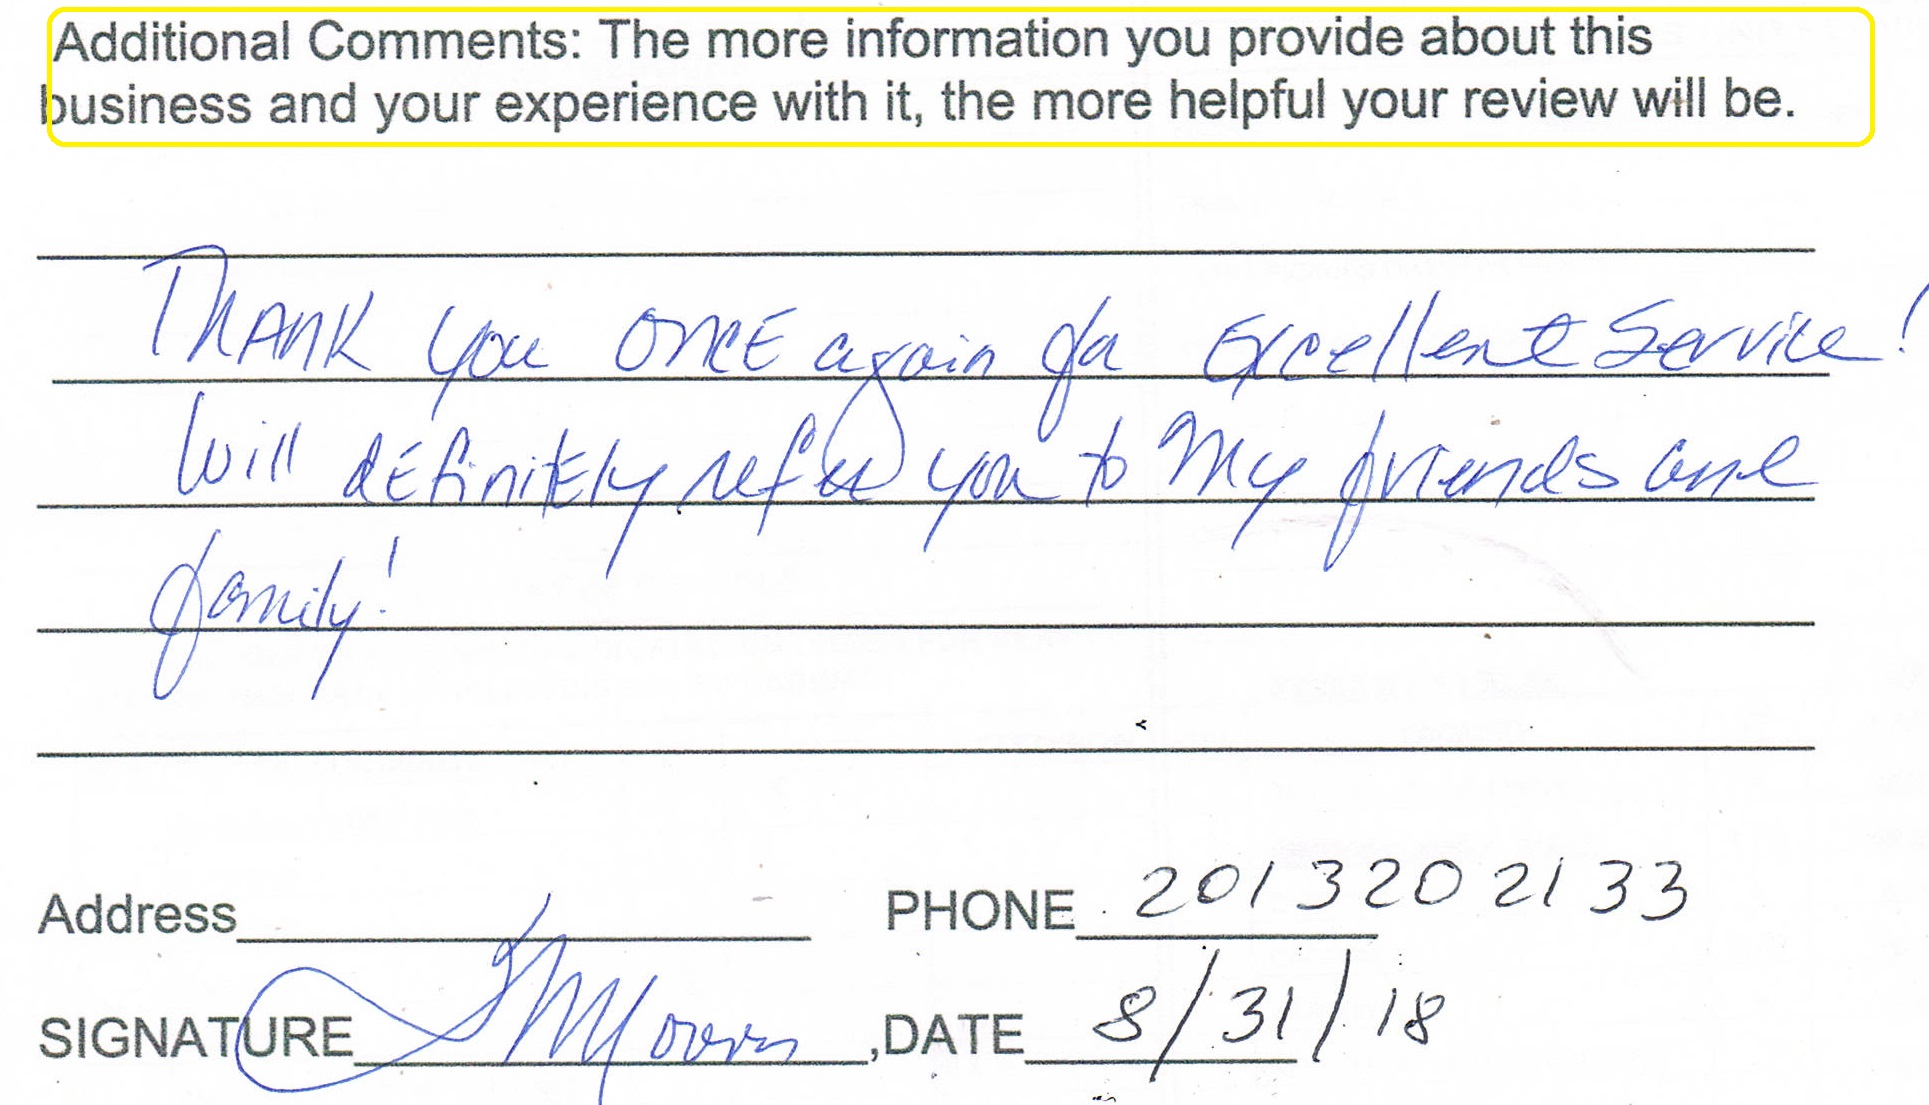 Additional Comments: The more information you provide about this
business and your experience with it, the more helpful your review will be.
THANK you ONCE again for Excellent Service!
Will definitely refer you to My friends and
family!
Address PHONE 201 320 2133
SIGNATURE ,DATE 8/31/18